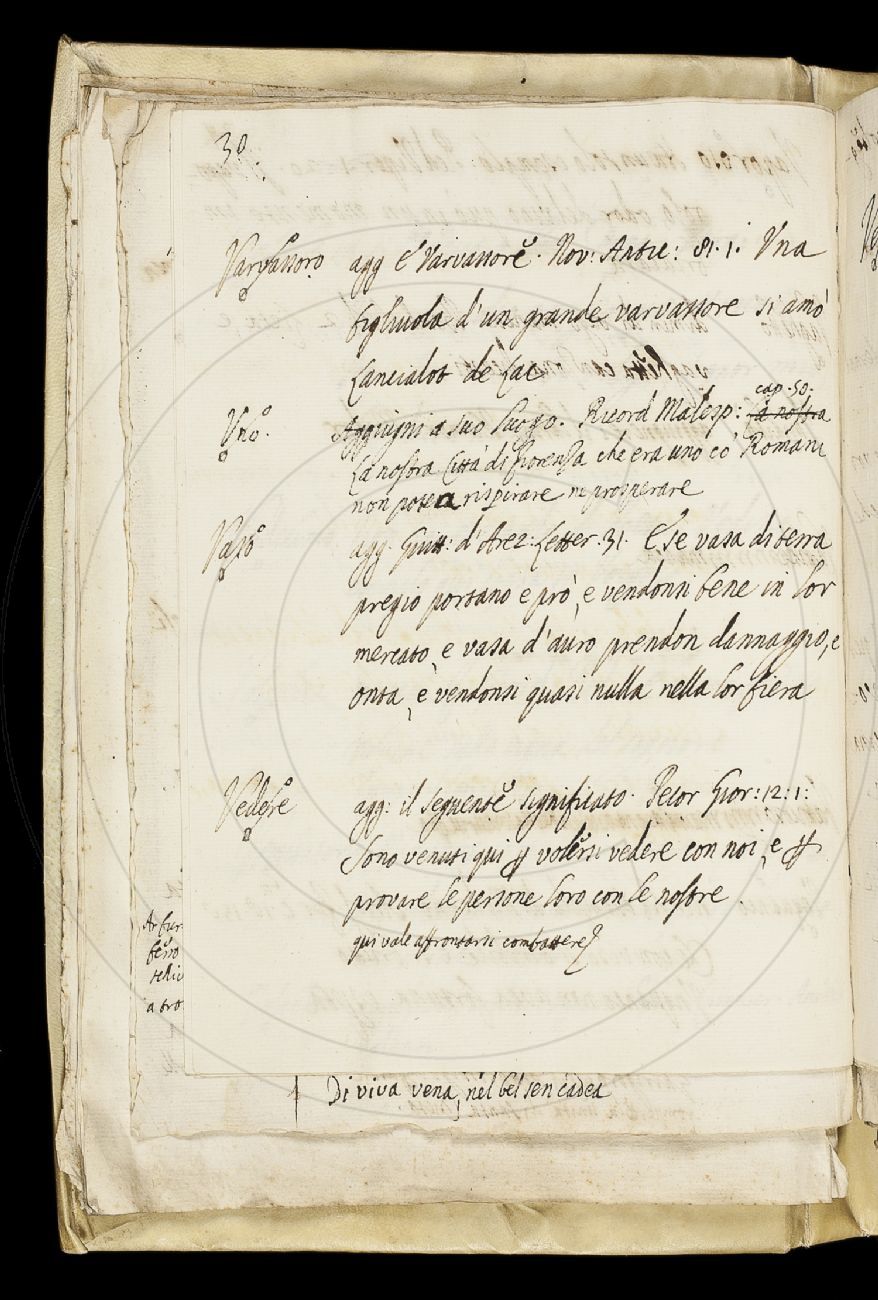 30
Varvassoro agg e Varvassore. Nov: Antic: 81. 1. Una
figliuola d'un grande varvassore si amò
Lancialot de Lac
Uno. Aggiugni a suo luogo. Ricord Malesp: cap. 50. a nostra
La nostra Città di Fiorenza che era uno co' Romani
non potea rispirare ne prosperare
Vaso agg. Guitt: d'Arez: Letter. 31. E se vasa di terra
pregio portano e prò, e vendonsi bene in lor
mercato, e vasa d'auro prendon dannaggio, e
onta, e vendonsi quasi nulla nella lor fiera
Vedere agg: il seguente significato. Pecor Gior: 12: 1:
Sono venuti qui ꝑ volersi vedere con noi, e ꝑ
provare le persone loro con le nostre
qui vale affrontarsi combattere
Ar fur
a tro
Di viva vena, nel bel sen cadea